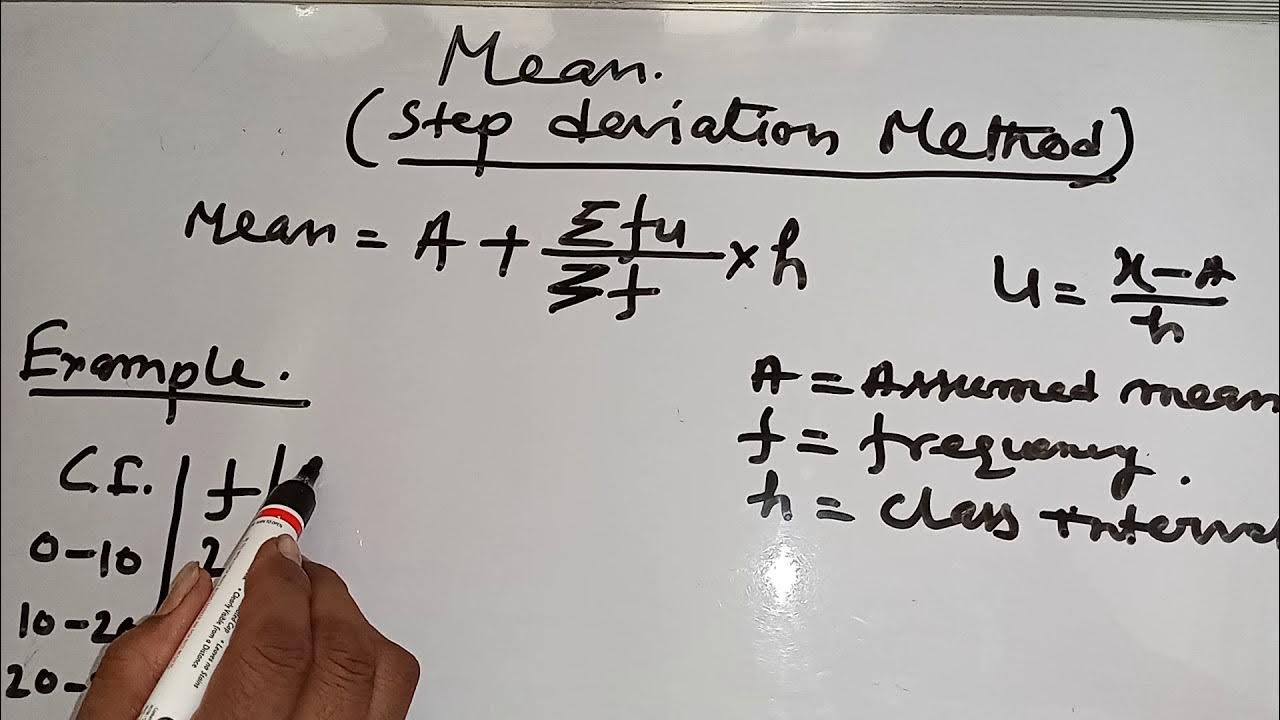 Mean.
(Step deviation Method)
Mean = A + Σfu / Σf × h
u = x - A / h
A = Assumed mean
f = frequency.
h = class interval
Example.
C.I. | f |
0-10 | 2
10-20
20-